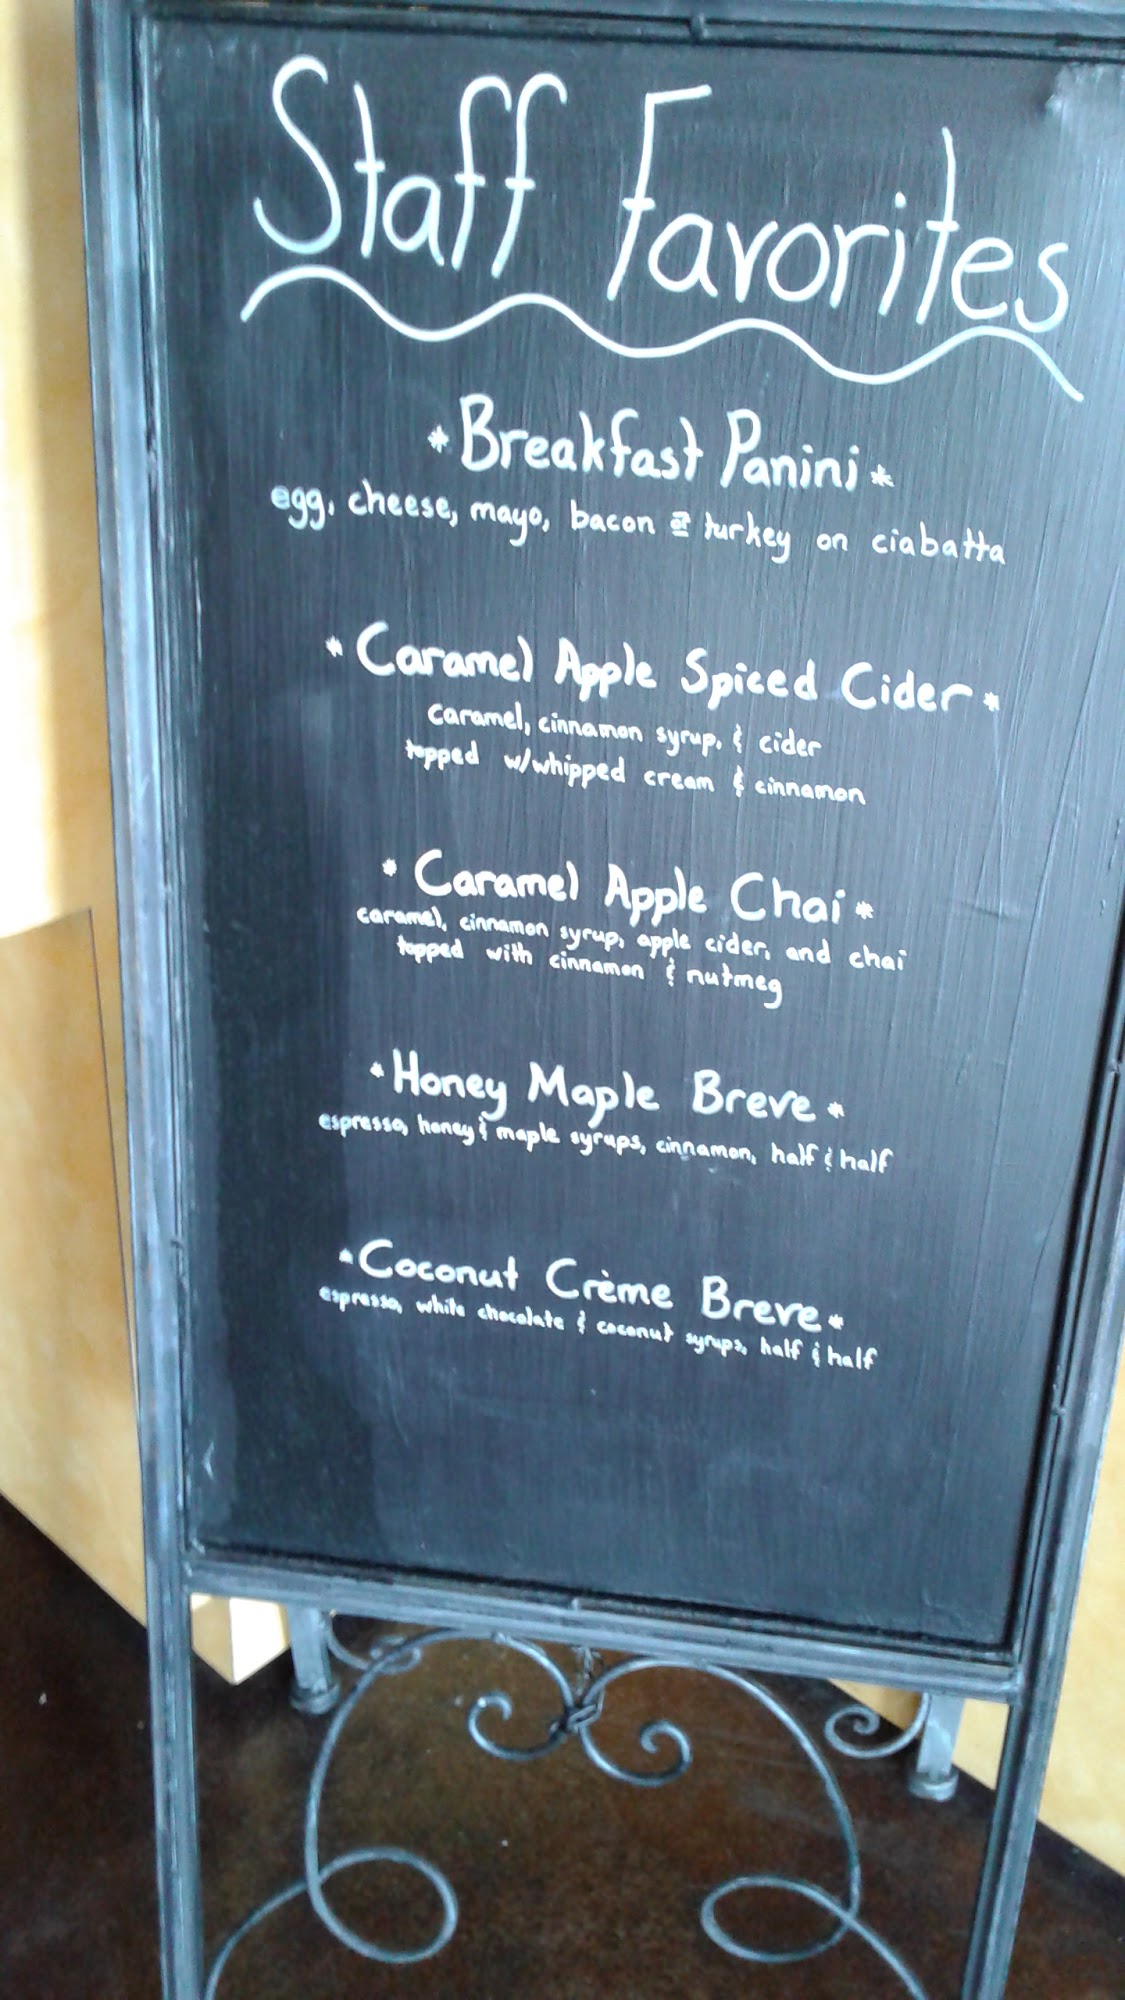 Staff Favorites
*Breakfast Panini*
egg, cheese, mayo, bacon or turkey on ciabatta
*Caramel Apple Spiced Cider*
caramel, cinnamon syrup, & cider
topped w/whipped cream & cinnamon
*Caramel Apple Chai*
caramel, cinnamon syrup, apple cider, and chai
topped with cinnamon & nutmeg
*Honey Maple Breve*
espresso, honey & maple syrups, cinnamon, half & half
*Coconut Crème Breve*
espresso, white chocolate & coconut syrups, half & half